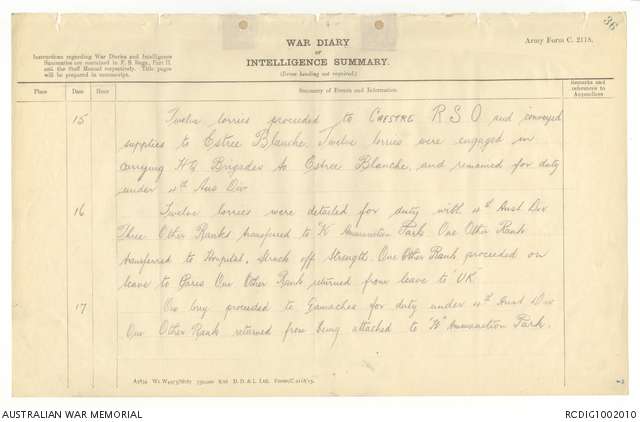 36
Army Form C. 2118.
WAR DIARY
or
INTELLIGENCE SUMMARY.
(Erase heading not required.)
Instructions regarding War Diaries and Intelligence
Summaries are contained in F. S. Regs., Part II.
and the Staff Manual respectively. Title pages
will be prepared in manuscript.
Place Date Hour Summary of Events and Information Remarks and references to Appendices
15 Twelve lorries proceeded to CAESTRE R S O and conveyed
supplies to Estree Blanche. Twelve lorries were engaged in
carrying Brigades to Estree Blanche, and remained for duty
under 4th Aus Div
16 Twelve lorries were detailed for duty with 4th Aust Div
Three Other Ranks transferred to Ammunition Park. One Other Rank
transferred to Hospital. Struck off Strength. One Other Rank proceeded on
leave to Paris One Other Rank returned from leave to UK
17 One proceeded to Gamaches for duty under 4th Aust Div
One Other Rank returned from being attached to Ammunition Park.
D. D. & L. Ltd.
AUSTRALIAN WAR MEMORIAL
RCDIG1002010